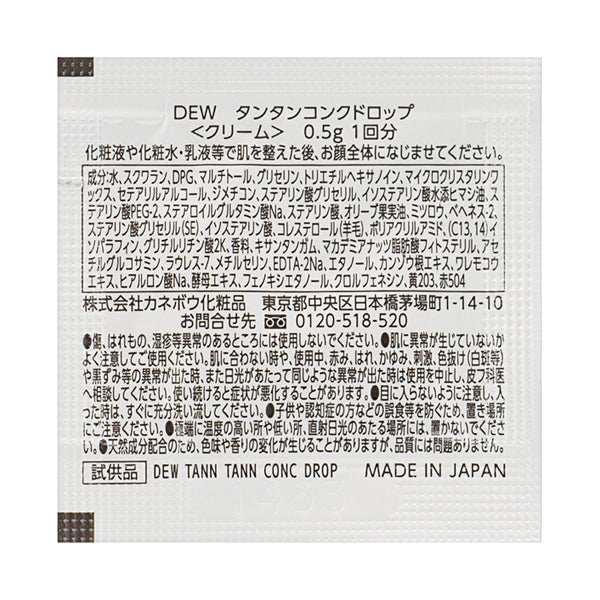 DEW タンタンコンクドロップ
＜クリーム＞ 0.5g 1回分
化粧液や化粧水・乳液等で肌を整えた後、お顔全体になじませてください。
成分:水、スクワラン、DPG、マルチトール、グリセリン、トリエチルヘキサノイン、マイクロクリスタリンワッ
クス、セテアリルアルコール、ジメチコン、ステアリン酸グリセリル、イソステアリン酸水添ヒマシ油、ス
テアリン酸PEG-2、ステアロイルグルタミン酸Na、ステアリン酸、オリーブ果実油、ミツロウ、ベヘネス-2、
ステアリン酸グリセリル(SE)、イソステアリン酸、コレステロール(羊毛)、ポリアクリルアミド、(C13,14)イ
ソパラフィン、グリチルリチン酸2K、香料、キサンタンガム、マカデミアナッツ脂肪酸フィトステリル、アセ
チルグルコサミン、ラウレス-7、メチルセリン、EDTA-2Na、エタノール、カンゾウ根エキス、ワレモコウ
エキス、ヒアルロン酸Na、酵母エキス、フェノキシエタノール、クロルフェネシン、黄203、赤504
株式会社カネボウ化粧品 東京都中央区日本橋茅場町1-14-10
お問合せ先 0120-518-520
●傷、はれもの、湿疹等異常のあるところには使用しないでください。●肌に異常が生じていないか
よく注意して使用してください。肌に合わない時や、使用中、赤み、はれ、かゆみ、刺激、色抜け(白斑等)
や黒ずみ等の異常が出た時、また日光があたって同じような異常が出た時は使用を中止し、皮フ科医
へ相談してください。使い続けると症状が悪化することがあります。●目に入らないように注意し、入
った時は、すぐに充分洗い流してください。●子供や認知症の方などの誤食等を防ぐため、置き場所
にご注意ください。●極端に温度の高い所や低い所、直射日光のあたる場所には、置かないでくださ
い。●天然成分配合のため、色味や香りの変化が生じることがありますが、品質には問題ありません。
試供品 DEW TANN TANN CONC DROP MADE IN JAPAN